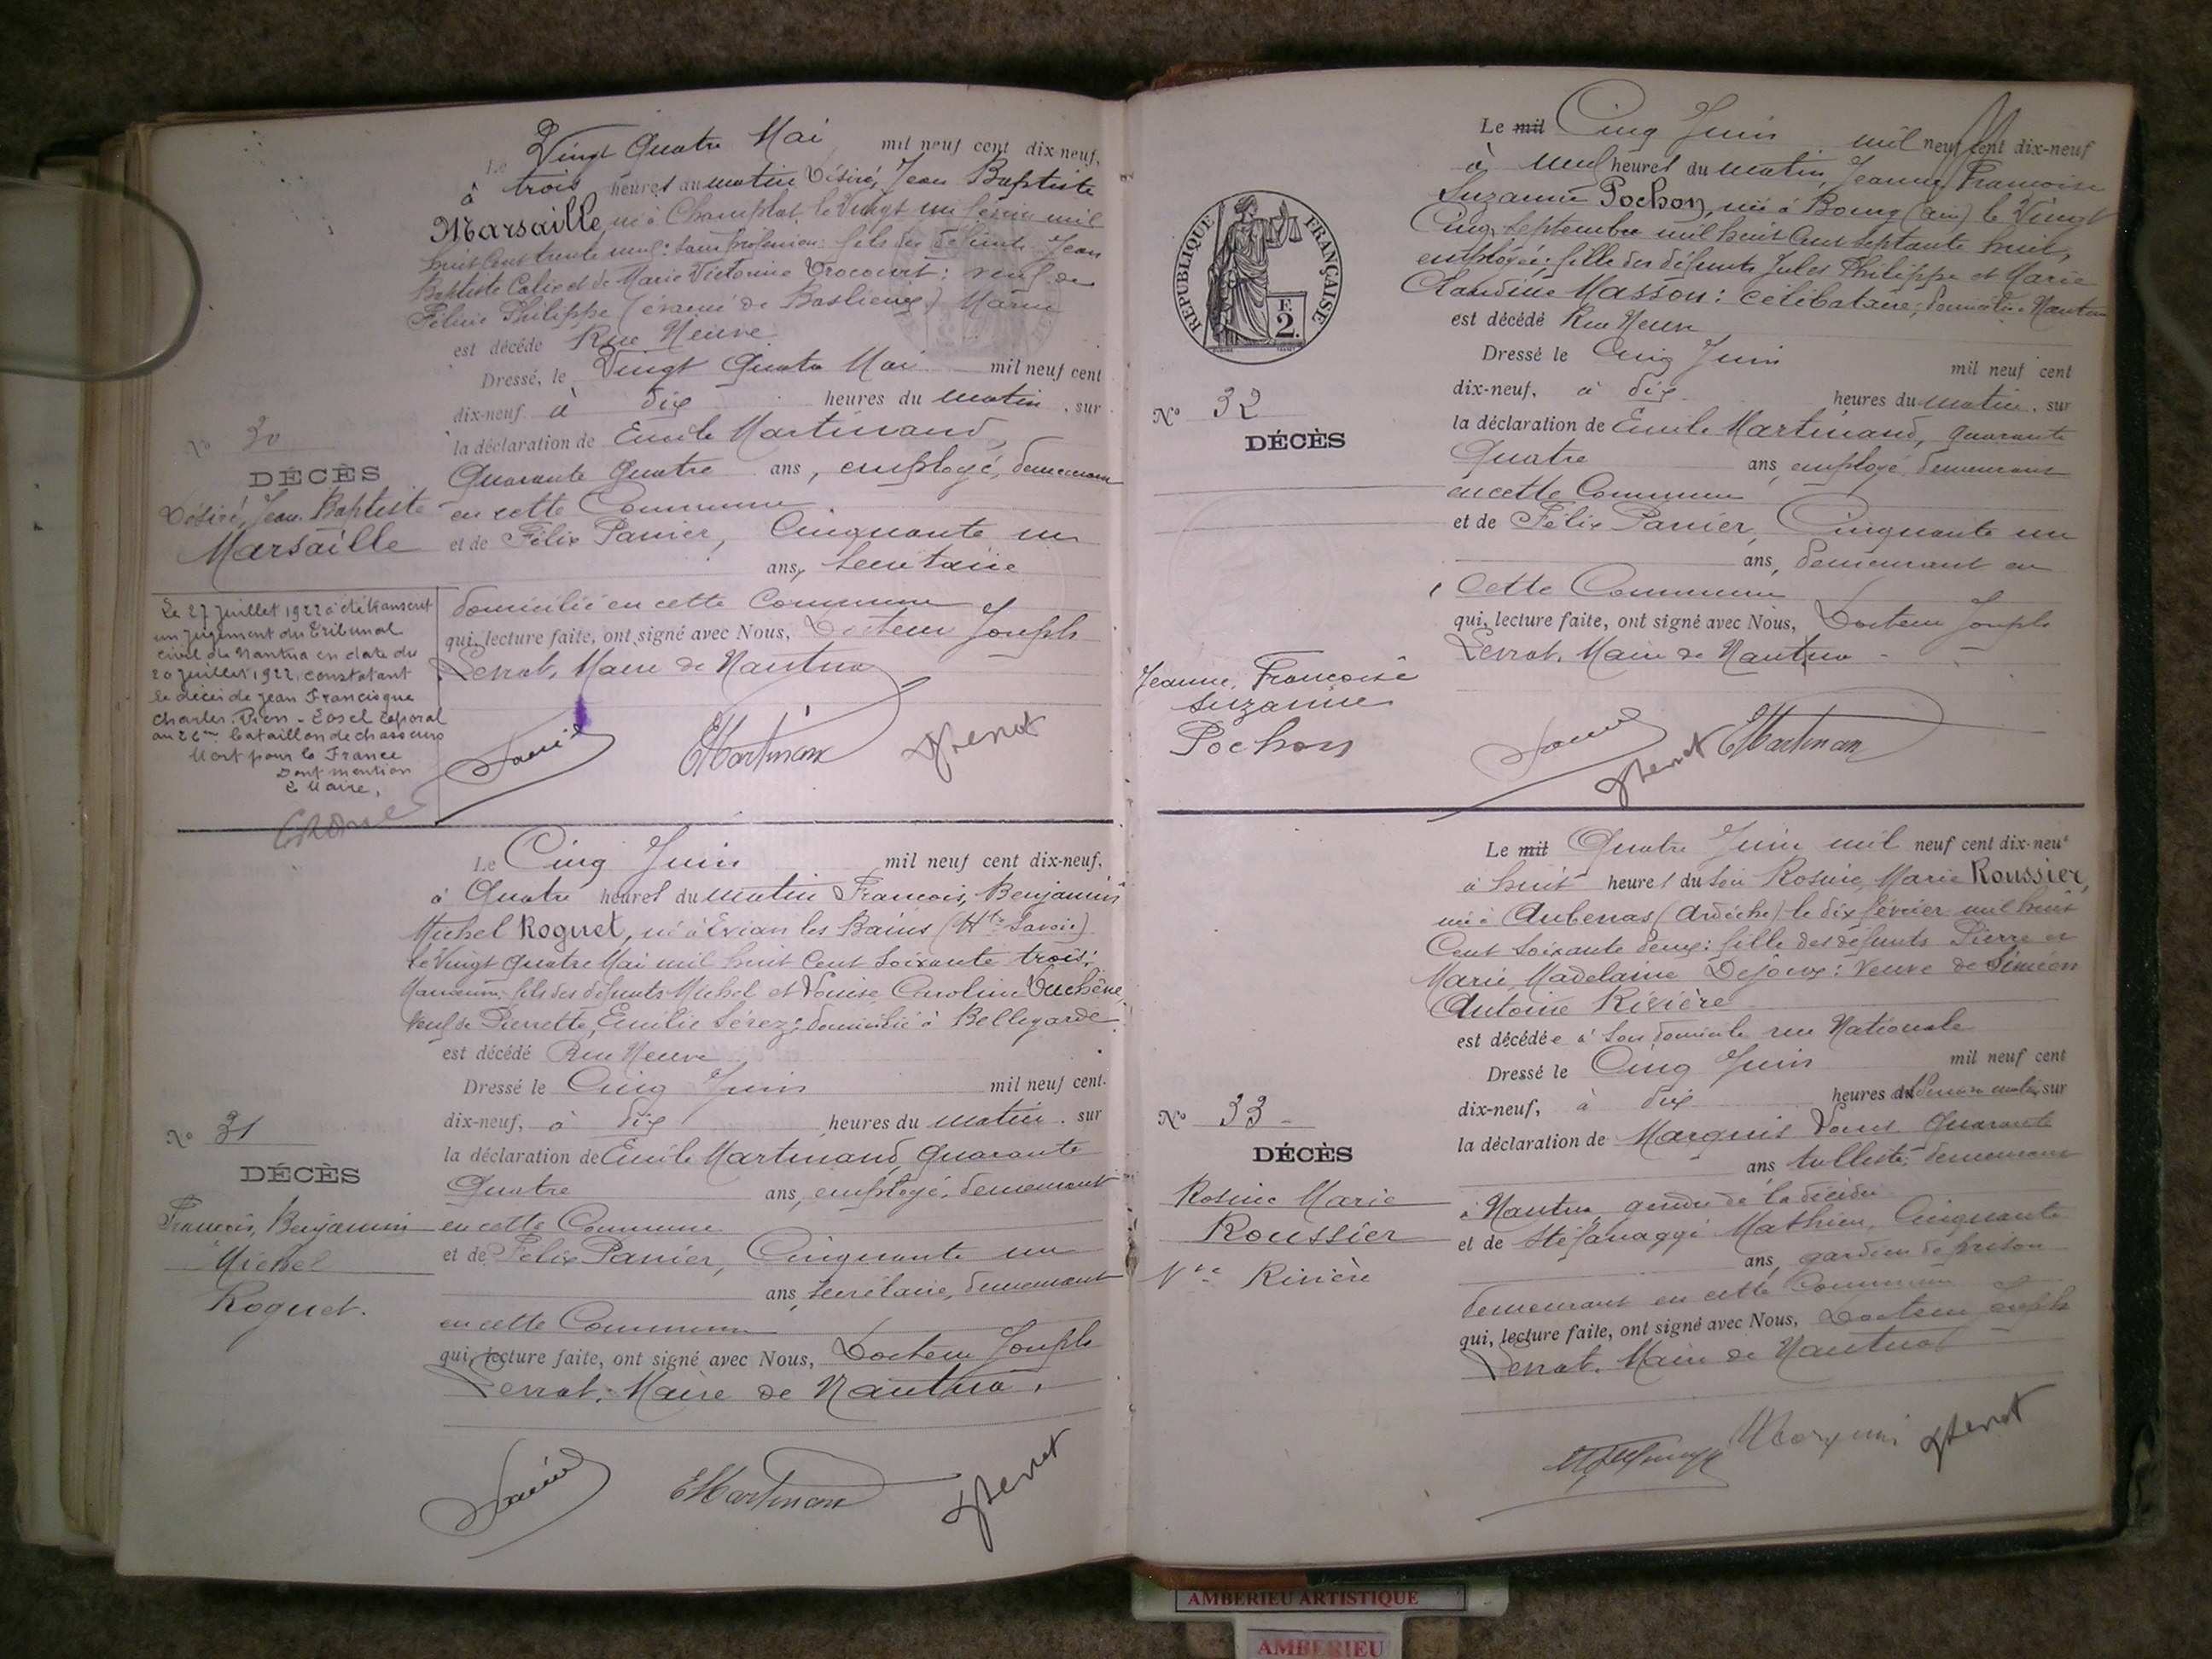 Le Vingt Quatre Mai mil neuf cent dix-neuf,
à trois heures du matin Désiré, Jean Baptiste
Marsaille, né à Champlat le Vingt un février mil
huit Cent trente neuf: sans profession: fils des défunts Jean
Baptiste Calix et de Marie Victorine Trocourt: veuf de
Félicie Philippe (évacué de Baslieux) Marne
est décédé Rue Neuve
Dressé, le Vingt Quatre Mai mil neuf cent
dix-neuf à dix heures du matin, sur
la déclaration de Emile Martinand,
Quarante Quatre ans, employé, demeurant
en cette Commune
et de Félix Panier, Cinquante un
ans, Secrétaire
domicilié en cette Commune
qui, lecture faite, ont signé avec Nous, Docteur Joseph
Levrat, Maire de Nantua
No 30
DÉCÈS
Désiré, Jean Baptiste
Marsaille
Le 27 Juillet 1922 a été transcrit
un Jugement du Tribunal
civil de Nantua en date du
20 Juillet 1922, constatant
le décès de Jean Francisque
Charles
caporal
au 26me bataillon de chasseurs
Mort pour la France
Dont mention
Le Maire,
EMartinan
Le Cinq Juin mil neuf cent dix-neuf,
à Quatre heures du matin François, Benjamin
Michel Roguet, né à Evian les Bains (Hte Savoie)
le Vingt Quatre Mai mil huit Cent Soixante trois:
fils des défunts Michel et Louise Caroline Duchêne
Veuf de Pierrette, Emilie Sérez: domicilié à Bellegarde
est décédé Rue Neuve
Dressé le Cinq Juin mil neuf cent
dix-neuf, à dix heures du matin, sur
la déclaration de Emile Martinand, Quarante
Quatre ans, employé, demeurant
en cette Commune
et de Félix Panier, Cinquante un
ans, Secrétaire, demeurant
en cette Commune
qui, lecture faite, ont signé avec Nous, Docteur Joseph
Levrat, Maire de Nantua.
No 31
DÉCÈS
François, Benjamin
Michel
Roguet.
EMartinan
Le mil Cinq Juin mil neuf cent dix-neuf
à neuf heures du matin, Jeanne, Françoise
Suzanne Pochon, née à Bourg (Ain) le Vingt
Cinq Septembre mil huit Cent Septante huit,
employée: fille des défunts Jules Philippe et Marie
Claudine Masson: célibataire; domiciliée Nantua
est décédé Rue Neuve
Dressé le Cinq Juin mil neuf cent
dix-neuf, à dix heures du matin, sur
la déclaration de Emile Martinand, Quarante
Quatre ans, employé, demeurant
en cette Commune
et de Félix Panier, Cinquante un
ans, demeurant en
Cette Commune
qui, lecture faite, ont signé avec Nous, Docteur Joseph
Levrat, Maire de Nantua -
RÉPUBLIQUE FRANÇAISE
F.
2.
No 32
DÉCÈS
Jeanne, Françoise
Suzanne
Pochon
EMartinan
Le mil Quatre Juin mil neuf cent dix-neuf
à huit heures du soir Rosine, Marie Roussier,
née à Aubenas (Ardèche) le dix février mil huit
Cent Soixante deux: fille des défunts Pierre et
Marie, Madelaine Dejoux: Veuve de Siméon
Antoine Rivière
est décédée à son domicile rue Nationale
Dressé le Cinq Juin mil neuf cent
dix-neuf, à dix heures du matin, sur
la déclaration de Marquis Louis Quarante
ans tulliste, demeurant
à Nantua gendre de la décédée
et de Stéfanaggi Mathieu, Cinquante
ans, gardien de prison
demeurant en cette Commune
qui, lecture faite, ont signé avec Nous, Docteur Joseph
Levrat, Maire de Nantua
No 33 -
DÉCÈS
Rosine Marie
Roussier
Vve Rivière
AMBERIEU ARTISTIQUE
AMBERIEU